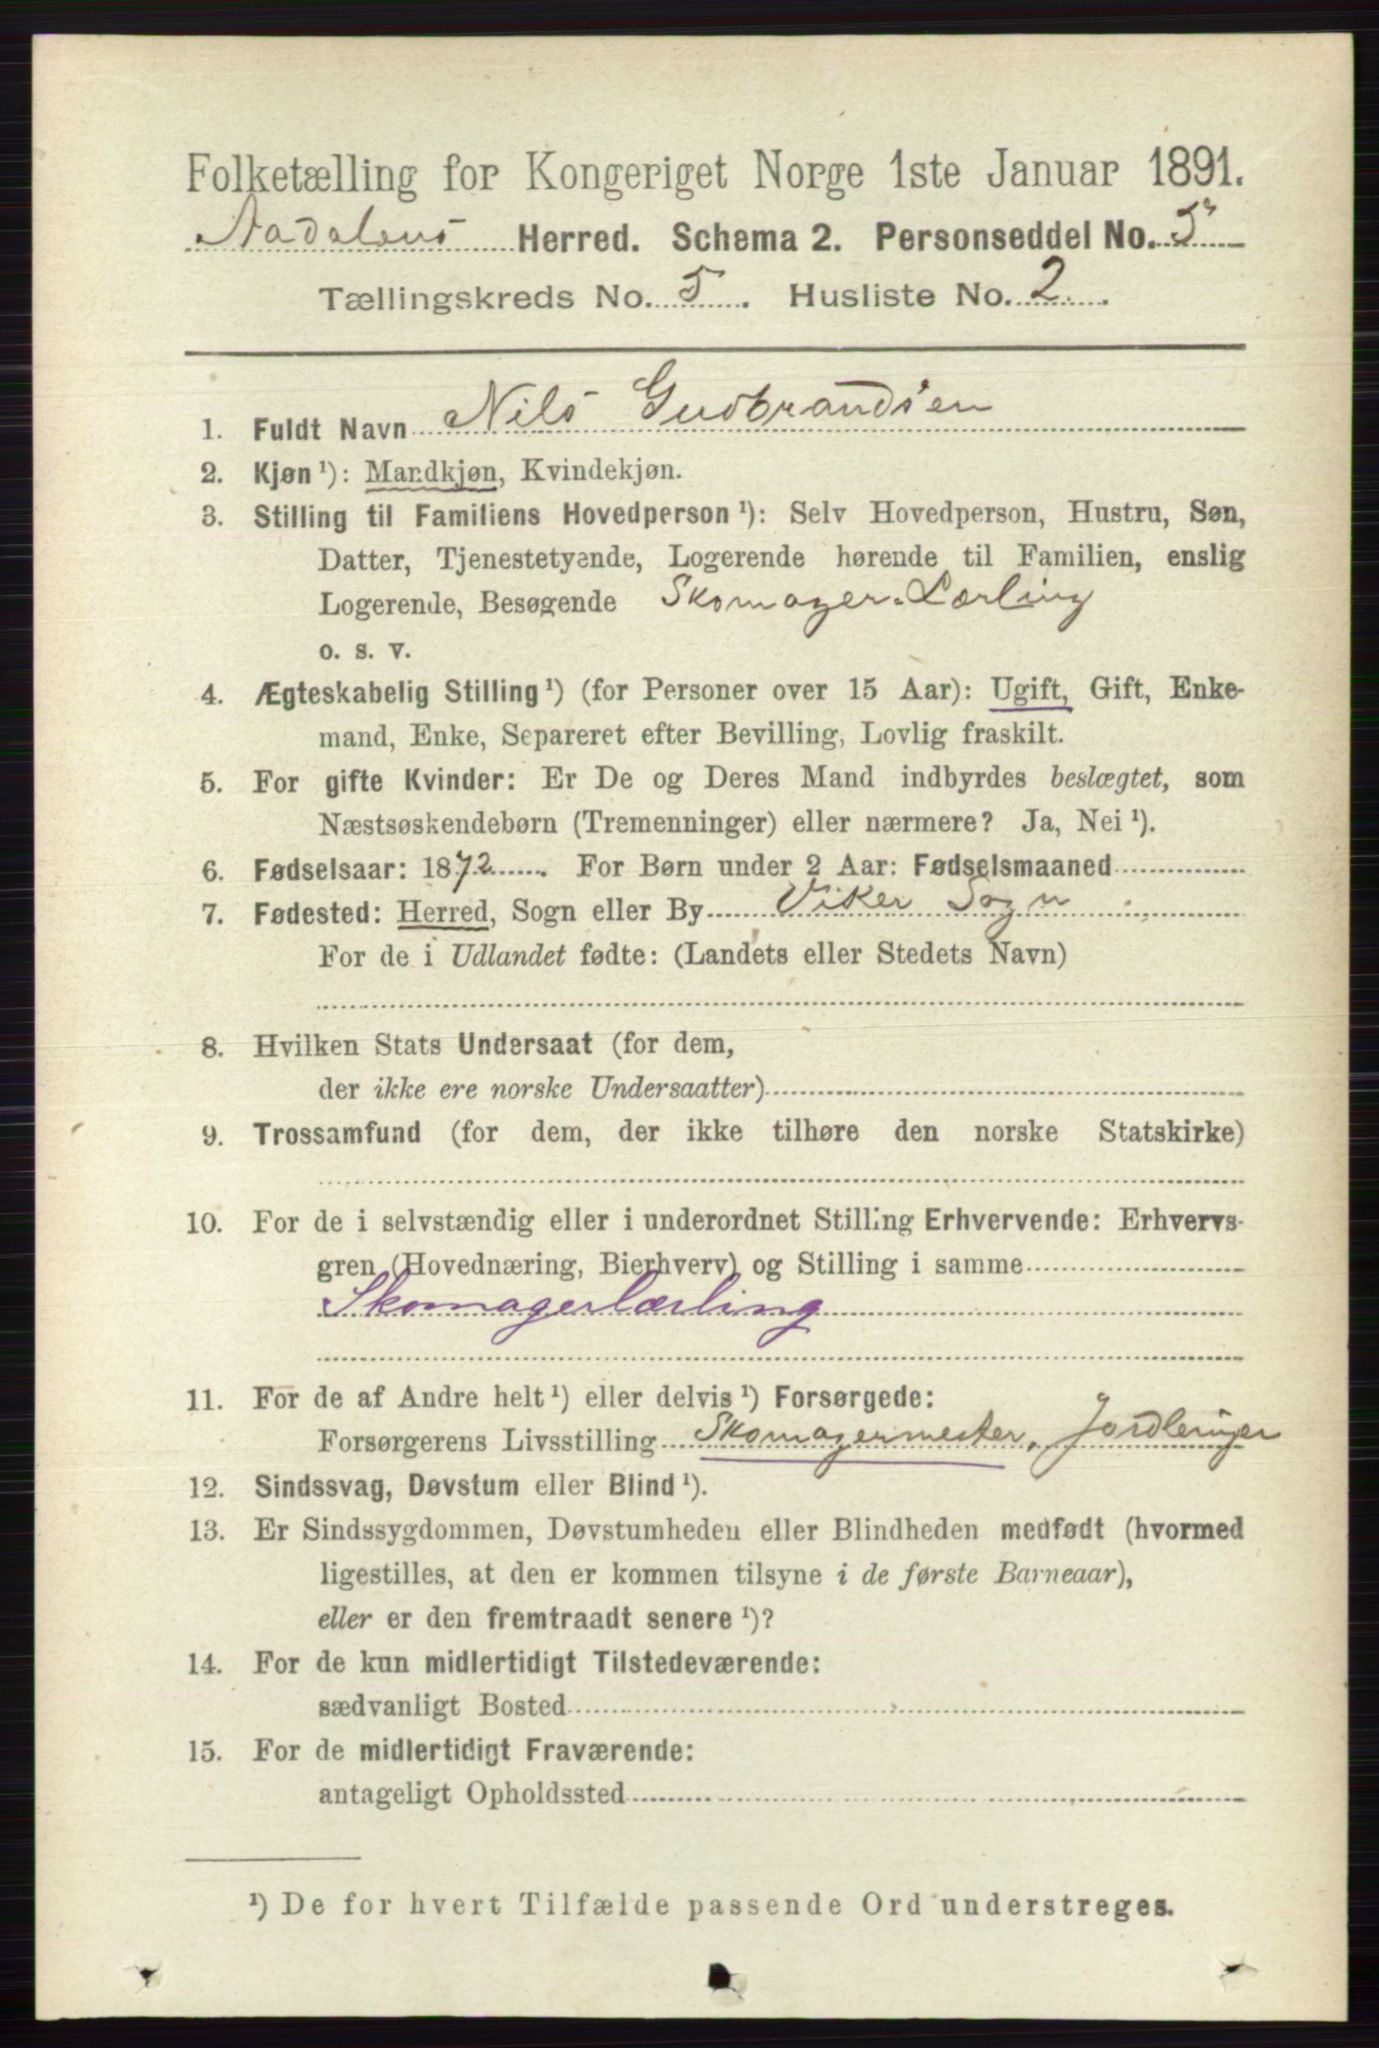 Folketælling for Kongeriget Norge 1ste Januar 1891.
Aadalens Herred. Schema 2. Personseddel No. 5
Tællingskreds No. 5. Husliste No. 2.
1. Fuldt Navn Nils Gudbrandsen
2. Kjøn ¹): Mandkjøn, Kvindekjøn.
3. Stilling til Familiens Hovedperson ¹): Selv Hovedperson, Hustru, Søn,
Datter, Tjenestetyende, Logerende hørende til Familien, enslig
Logerende, Besøgende Skomager-Lærling
o. s. v.
4. Ægteskabelig Stilling ¹) (for Personer over 15 Aar): Ugift, Gift, Enke-
mand, Enke, Separeret efter Bevilling, Lovlig fraskilt.
5. For gifte Kvinder: Er De og Deres Mand indbyrdes beslægtet, som
Næstsøskendebørn (Tremenninger) eller nærmere? Ja, Nei ¹).
6. Fødselsaar: 1872. For Børn under 2 Aar: Fødselsmaaned
7. Fødested: Herred, Sogn eller By Viker Sogn
For de i Udlandet fødte: (Landets eller Stedets Navn)
8. Hvilken Stats Undersaat (for dem,
der ikke ere norske Undersaatter)
9. Trossamfund (for dem, der ikke tilhøre den norske Statskirke)
10. For de i selvstændig eller i underordnet Stilling Erhvervende: Erhvervs-
gren (Hovednæring, Bierhverv) og Stilling i samme
Skomagerlærling
11. For de af Andre helt ¹) eller delvis ¹) Forsørgede:
Forsørgerens Livsstilling Skomagermester, Jordleiger
12. Sindssvag, Døvstum eller Blind ¹).
13. Er Sindssygdommen, Døvstumheden eller Blindheden medfødt (hvormed
ligestilles, at den er kommen tilsyne i de første Barneaar),
eller er den fremtraadt senere ¹)?
14. For de kun midlertidigt Tilstedeværende:
sædvanligt Bosted
15. For de midlertidigt Fraværende:
antageligt Opholdssted
¹) De for hvert Tilfælde passende Ord understreges.